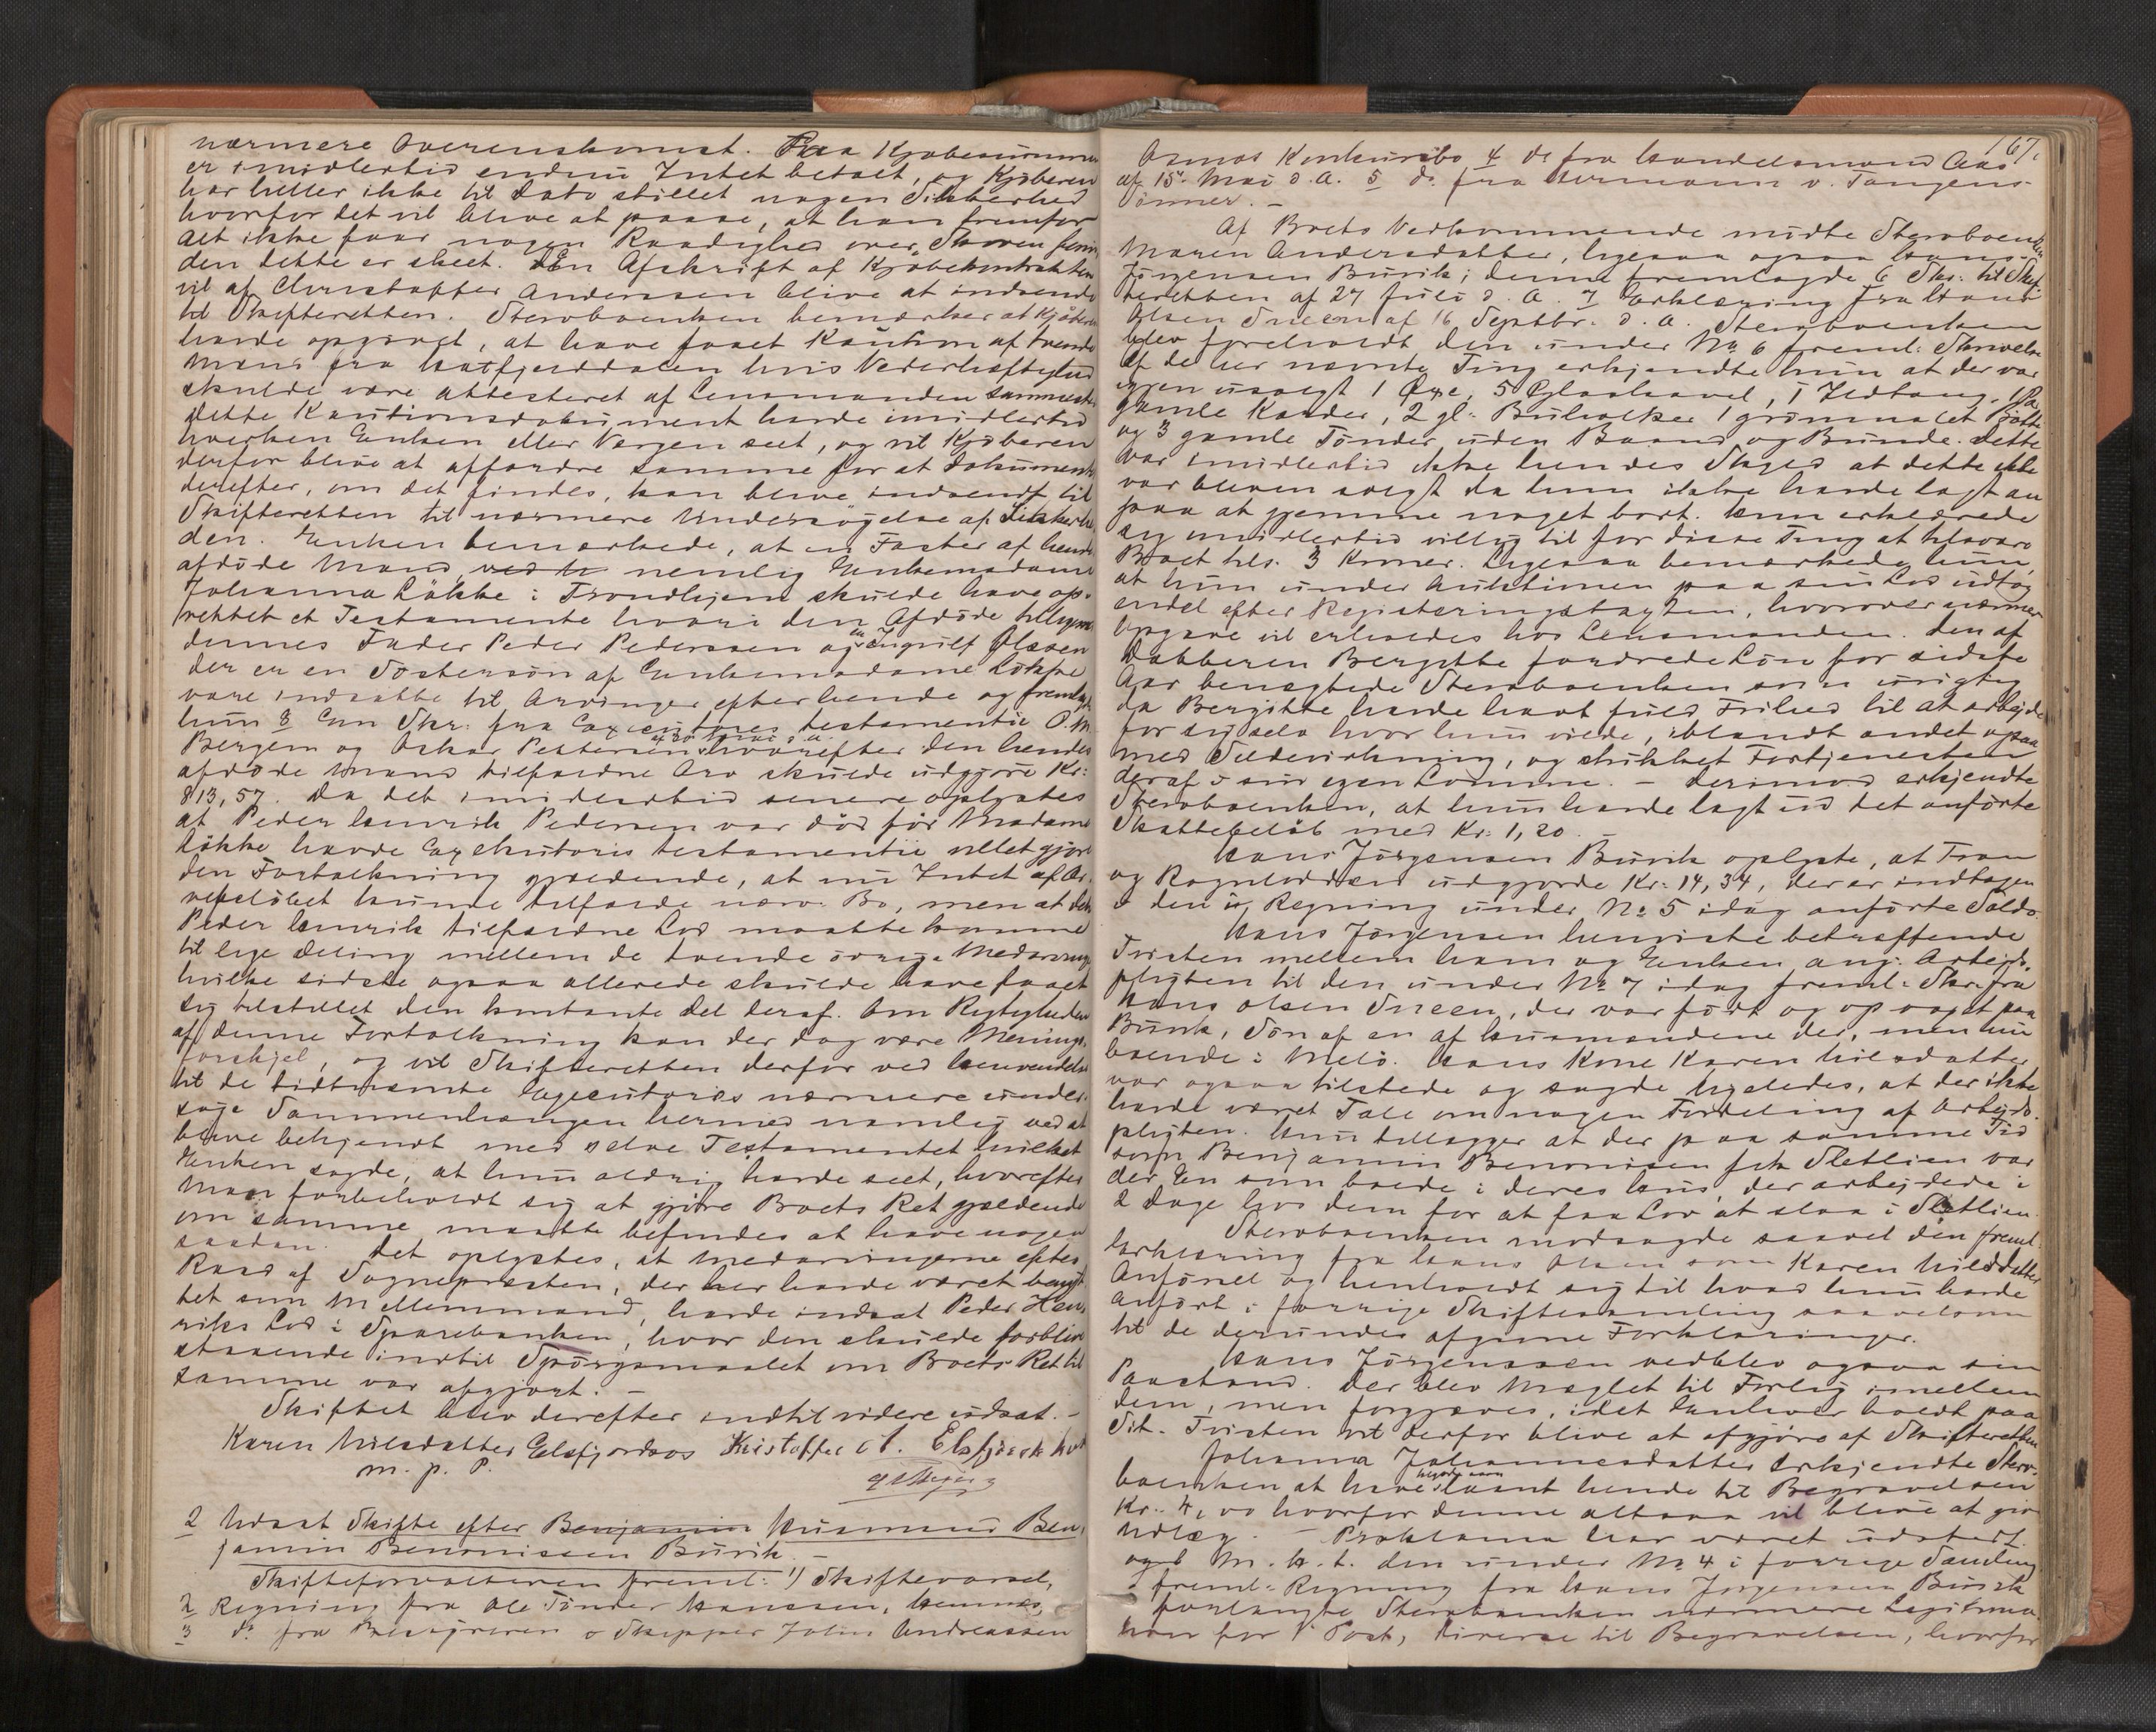 nærmere Overenskomst. Paa Kjøbesummen
er imidlertid endnu Intet betalt, og Kjøberen
har heller ikke til Dato stillet nogen Sikkerhed
hvorfor det vil blive at paase, at han fremfor
Alt ikke faar nogen Raadighed over Skoven
den dette er skeet. En Afskrift af Kjøbekontrakten
vil af Christoffer Anderssen blive at indsende
til Skifteretten. Sterboenken bemærker at Kjøberen
havde opgivet, at have faaet Kaution af tvende
Mænd fra Hatfjelddalen hvis Vederhæftighed
skulde være attesteret af Lensmanden sammesteds
Dette Kautionsdokument havde imidlertid
hverken Enken eller Værgen seet, og vil Kjøberen
derfor blive at affordre samme for at Dokumentet
derefter, om det findes, kan blive indsendt til
Skifteretten til nærmere Undersøgelse af Sikkerhe
den. Enken bemærkede, at en Faster af hendes
afdøde Mand, nemlig Enkemadame
Johanna Løkke i Trondhjem skulde have op-
rettet et Testamente hvori den Afdøde tilligemed
dennes Fader Peder Pederssen og en Ingvulf Olesen
der er en Søstersøn af Enkemadame Løkke
være indsatte til Arvinger efter hende og fremlagde
hun 8 Een Skr. fra Executores testamentii O. M.
Bergem og Oskar Pettersen hvorefter den hendes
afdøde Mand tilfaldne Arv skulde udgjøre Kr:
813,57. Da det imidlertid senere oplystes
at Peder Henrik Pedersen var død før Madame
Løkke havde Exekutoris testamentii villet gjøre
den Fortolkning gjældende, at nu Intet af Ar-
vebeløbet kunde tilfalde nærv: Bo, men at det
Peder Henrik tilfaldne Lod maatte komme
til lige Deling mellem de tvende øvrige Medarvinge
hvilke sidste ogsaa allerede skulde have faaet
sig tilstillet den kontante Del deraf. Om Rigtigheden
af denne Fortolkning kan der dog være Menings-
forskjel, og vil Skifteretten derfor ved Henvendelse
til de tidtnævnte Executores nærmere under-
søge Sammenhængen hermed nemlig ved at
blive bekjendt med selve Testamentet hvilket
Enken sagde, at hun aldrig havde seet, hvorefter
Man forbeholdt sig at gjøre Boets Ret gjældende
om samme maatte befindes at have nogen
saadan. Det oplystes, at Medarvingerne efter
Raad af Sognepræsten, der her havde været benyt
tet som Mellemmand, havde indsat Peder Hen-
riks Lod i Sparebanken, hvor den skulde forblive
staaende indtil Spørgsmaalet om Boets Ret til
samme var afgjort. –
Skiftet blev derefter indtil videre udsat. –
Karen Nilsdatter Elsfjordaas Kristoffer A. Elsfjordk
m. p. P.
2 Udsat Skifte efter Benjamin Husmand Ben-
jamin Benonissen Burik. –
Skifteforvalteren freml: 1) Skiftevarsel,
2 Regning fra Ole Tønder Hanssen, Hemnes,
3 do fra Bestyreren o Skipper John Andreassen
167.
Asmos Konkursbo 4 do fra Handelsmand Aas
af 15. Mai d. A. 5 do. fra Hermann v. Tangens
Sønner. –
Af Boets Vedkommende mødte Sterboenken
Maren Andersdatter, ligesaa ogsaa Hans
Jørgensen Burik; denne fremlagde 6 Skr: til Skif-
teretten af 27 Juli d. A. 7 Erklæring fra Hans
Olsen Sneen af 16 Septbr. d. A. Sterboenken
blev foreholdt den under No 6 freml: Skrivelse
Af de her nævnte Ting erkjendte hun at der var
igjen usolgt 1 Øxe, 5 , 1 Ildtang,
gamle Karder, 2 gl: 1 Potte
og 3 gamle Tønder uden Baand og Bunde. Dette
var imidlertid ikke hendes Skyld at dette ikke
var bleven solgt da hun ikke havde lagt an
paa at gjemme noget bort. Hun erklærede
sig imidlertid villig til for disse Ting at tilsvare
Boet tils. 3 Kroner. Ligesaa bemærkede hun,
at hun under Auktionen paa sin Lod udtog
endel efter Registreringstaxten, hvorover nærmere
Opgave vil erholdes hos Lensmanden. Den af
Datteren Bergitte fordrede Løn for sidste
Aar benægtede Sterboenken som urigtig
da Bergitte havde havt fuld Frihed til at arbejde
for sig selv hvor hun vilde, iblandt andet ogsaa
med Sildevirkning, og stukket Fortjenesten
deraf i sin egen Lomme. – Derimod erkjendte
Sterboenken, at hun havde lagt ud det anførte
Skattebeløb med Kr: 1,20. –
Hans Jørgensen Burik oplyste, at Tran
og Rognlodden udgjorde Kr: 14,34, der er indtagen
i den i Regning under No 5 idag anførte Saldo.
Hans Jørgensen henviste betræffende
Tvisten mellem ham og Enken ang: Arbejds-
pligten til den under No 7 idag freml: Skr. fra
Hans Olsen Sneen, der var født og opvoxet paa
Burik, Søn af en af Husmændene der, men nu
boende i Melø. Hans Kone Karen Nilsdatter
var ogsaa tilstede og sagde ligeledes, at der ikke
havde været Tale om nogen Fordeling af Arbejds-
pligten. Hun tillægger at der paa samme Tid
som Benjamin Benonisen fik Sletlien var
der En som boede i deres Hus, der arbejdede i
2 Dage hos dem for at faa Lov at slaa i Sletlien.
Sterboenken modsagde saavel den freml.
Erklæring fra Hans Olsen som Karen Nilsdatters
Anførsel og henholdt sig til hvad hun havde
anført i forrige Skiftesamling saa velsom
til de derunder afgivne Forklaringer.
Hans Jørgenssen vedblev ogsaa sin
Paastand. Der blev Mæglet til Forlig imellem
dem, men forgjæves, idet Enhver holdt paa
Sit. Tvisten vil derfor blive at afgjøre af Skifteretten
Johanna Johannesdatter erkjendte Sterv-
boenken at have laant hende til Begravelsen
Kr: 4,00 hvorfor denne altsaa vil blive at give
Udlæg. – Proklama har været udstedt.
og M. H. t. den under No 4 i forrige Samling
freml: Regning fra Hans Jørgensen Burik
forlangte Sterboenken nærmere Legitima-
tion for 1 Post, diverse til Begravelsen, hvorfor